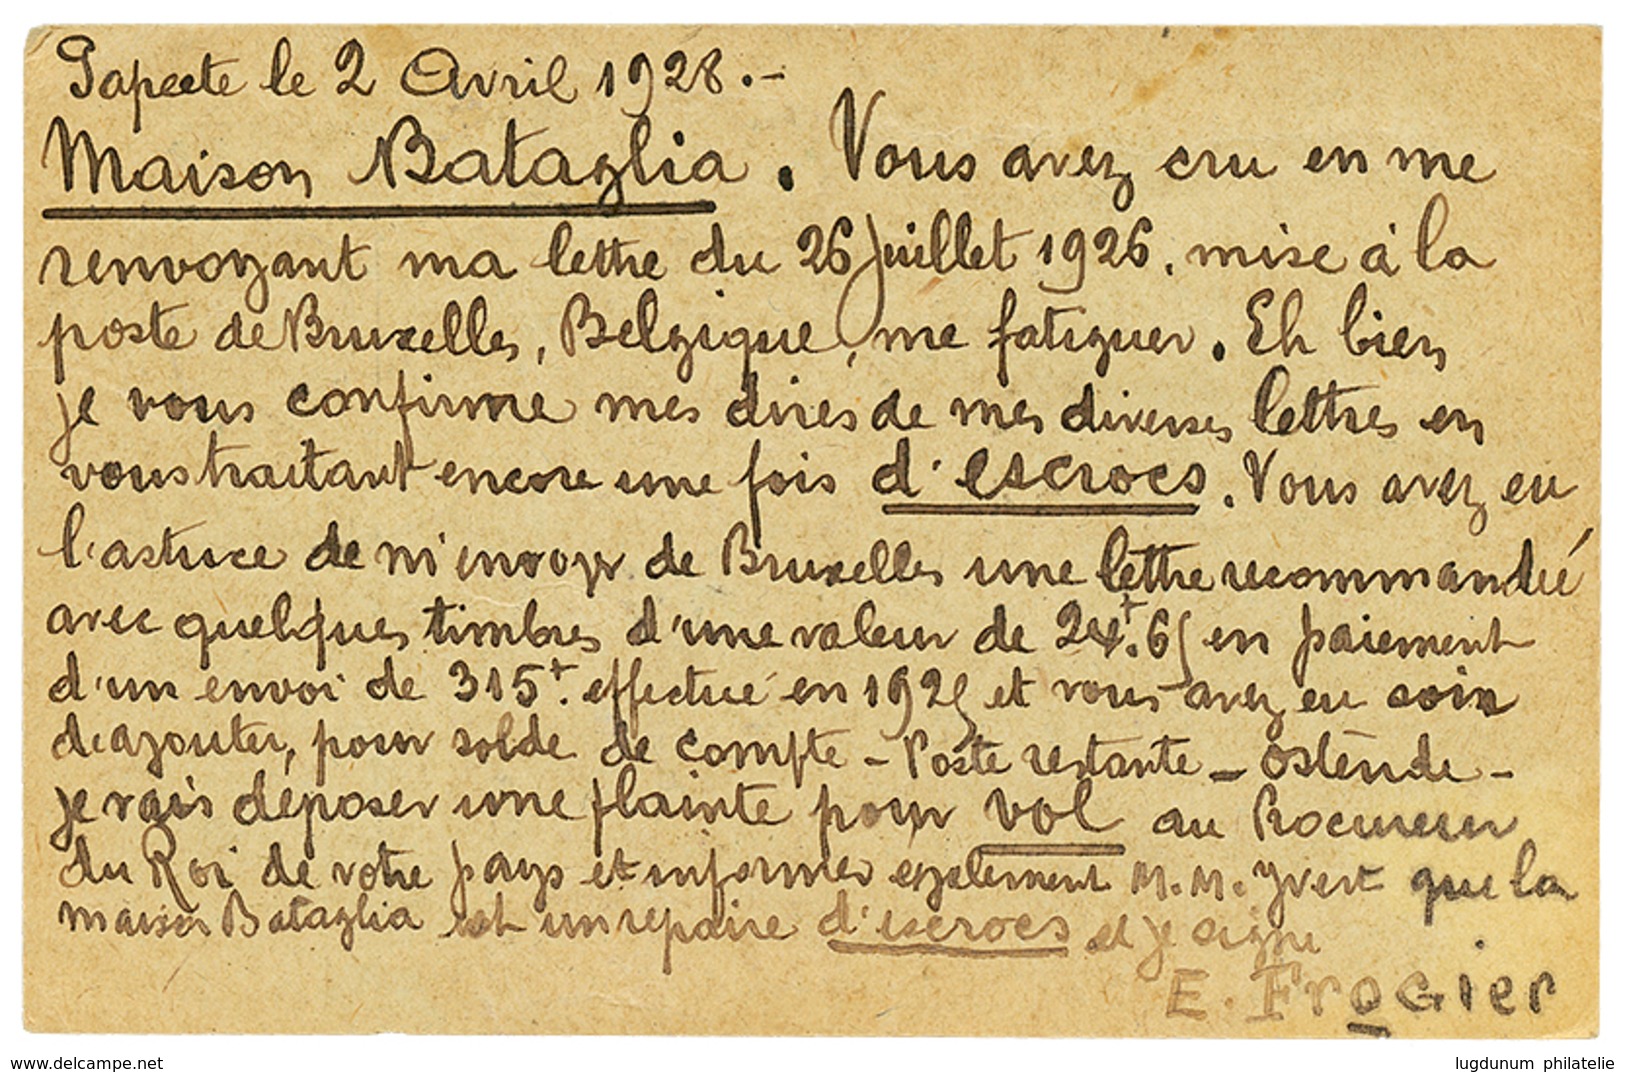 Papeete le 2 Avril 1928.-
Maison Bataglia. Vous avez cru en me
renvoyant ma lettre du 26 Juillet 1926. mise à la
poste de Bruxelles, Belgique, me fatiguer. Eh bien
je vous confirme mes dires de mes diverses lettres en
vous traitant encore une fois d'escrocs. Vous avez eu
l'astuce de m'envoyer de Bruxelles une lettre recommandée
avec quelques timbres d'une valeur de 24f.65 en paiement
d'un envoi de 315f. effectué en 1925 et vous avez eu soin
d'ajouter, pour solde de compte - Poste restante - Ostende -
je vais déposer une plainte pour vol au Procureur
du Roi de votre pays et informer également M.M. Yvert que la
maison Bataglia est un repaire d'escrocs et je signe
E. Frogier
www.delcampe.net
lugdunum philatelie